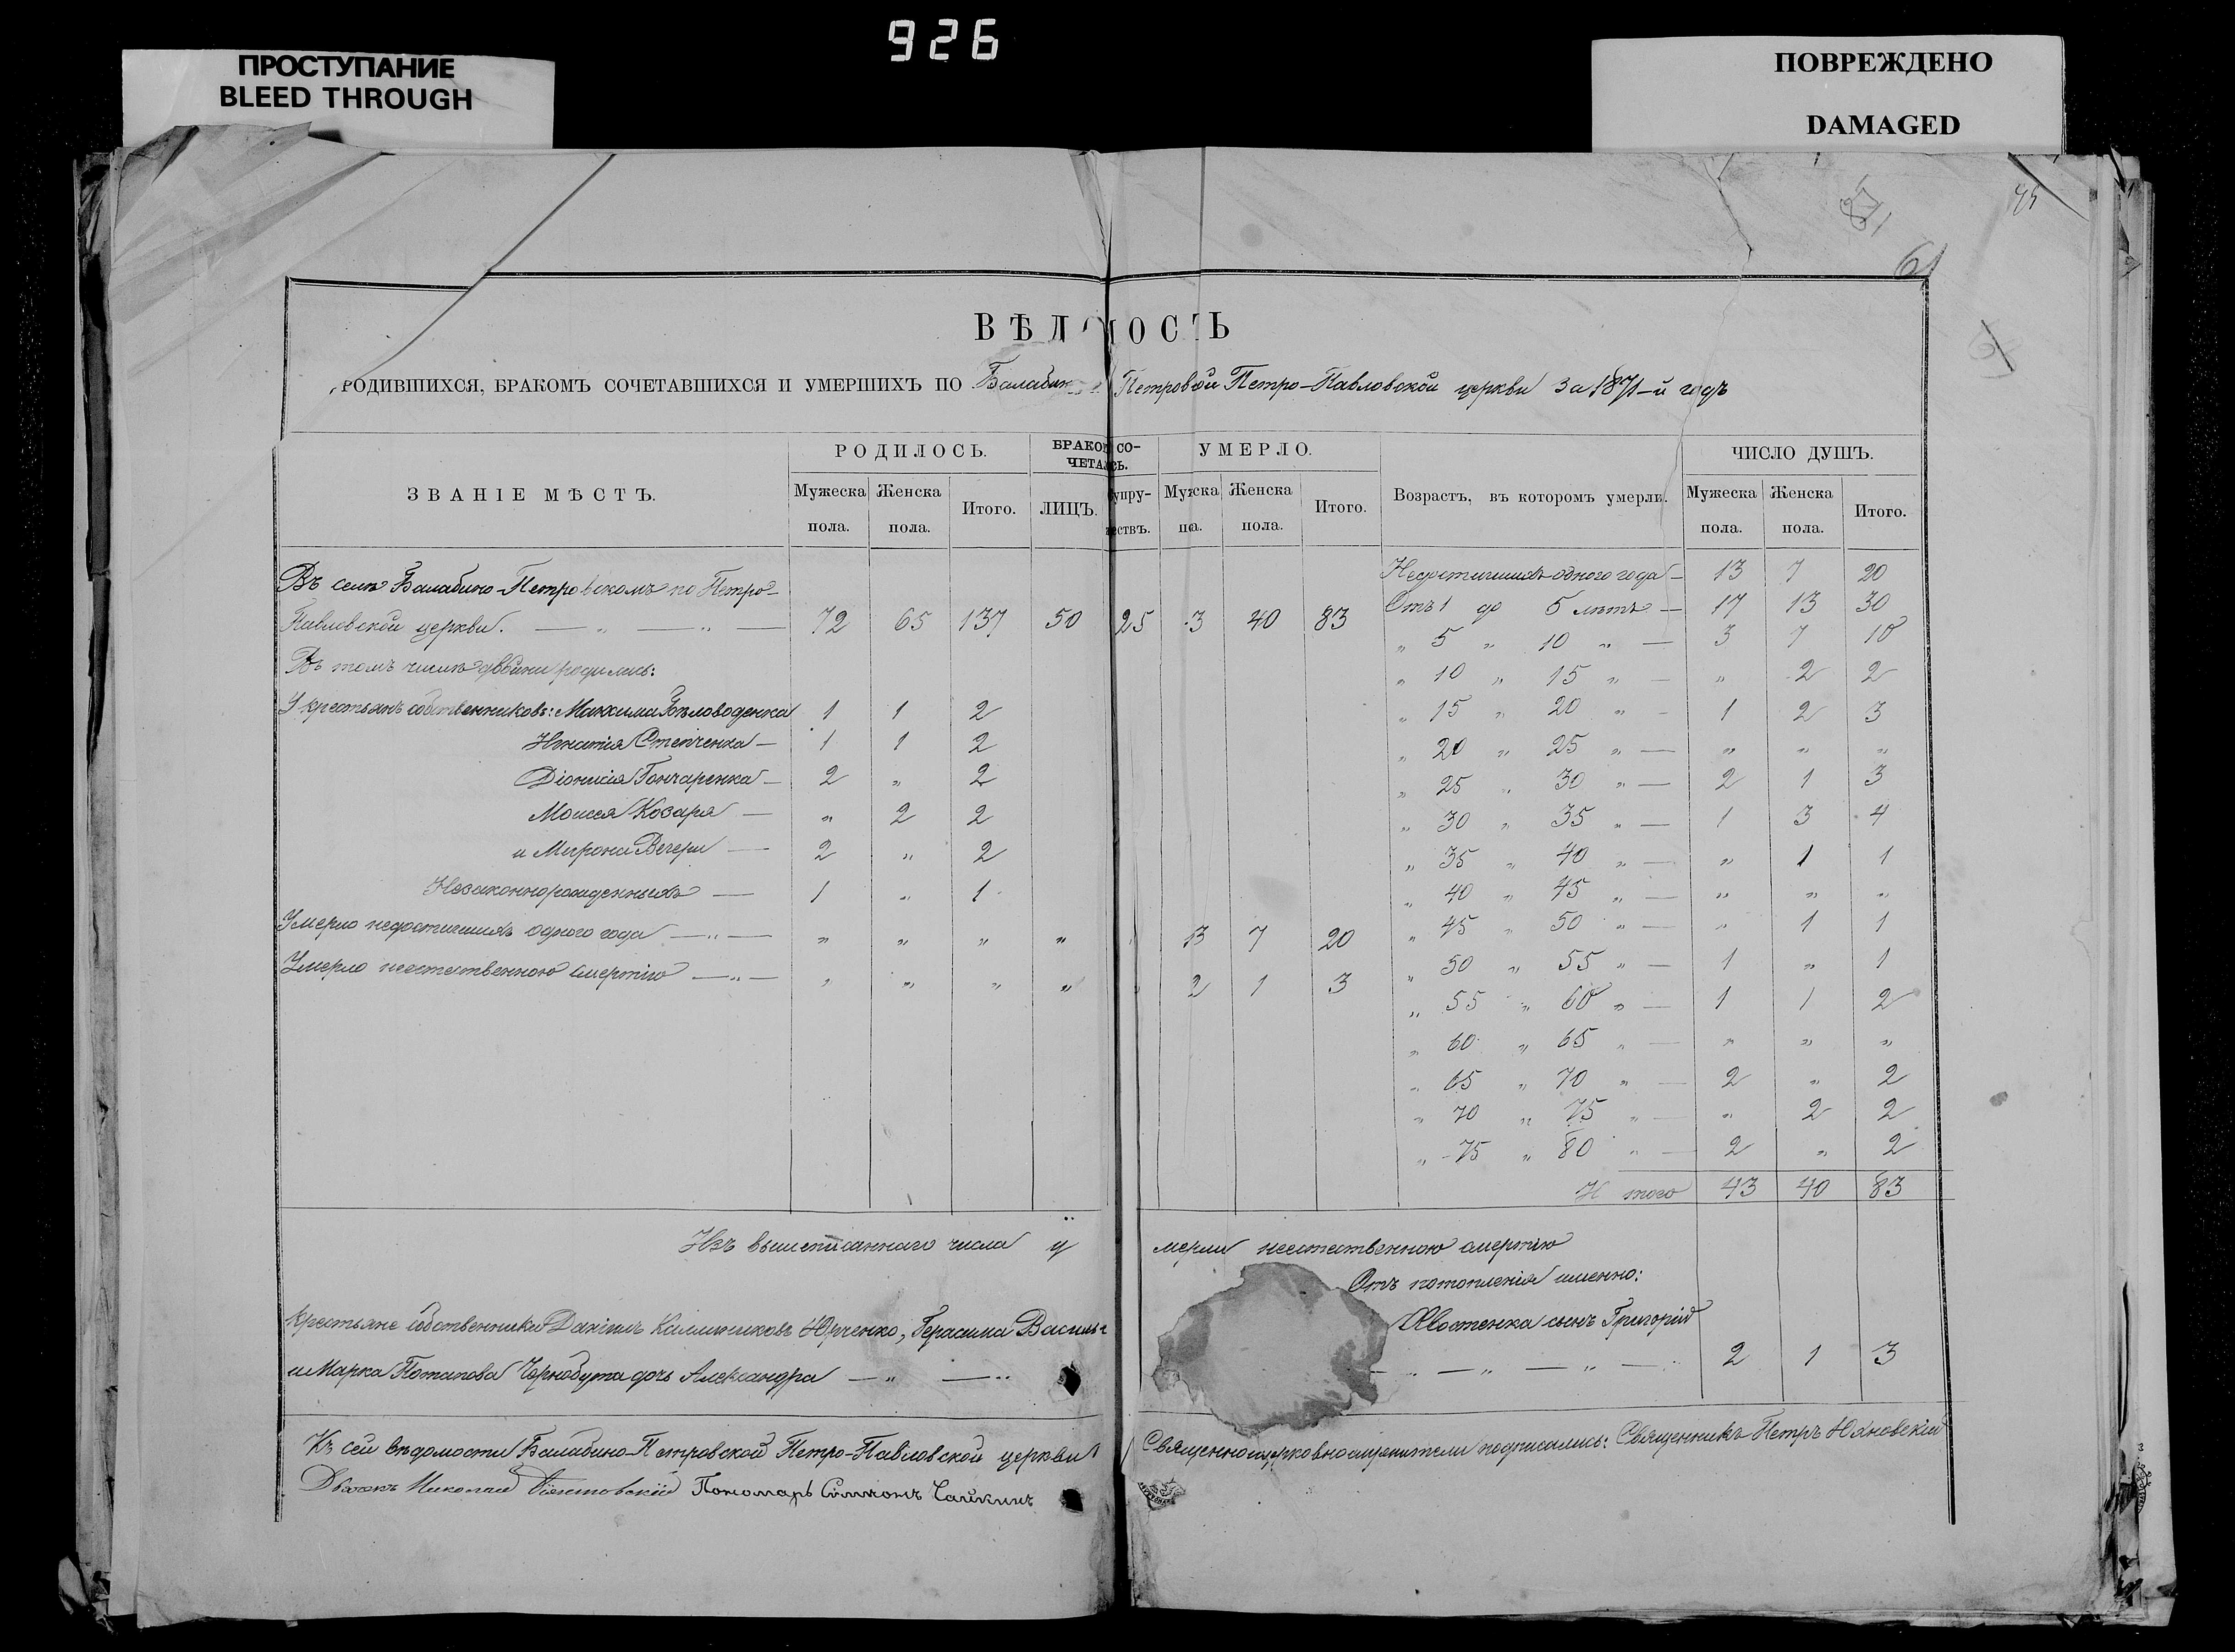 926
ПРОСТУПАНИЕ
BLEED THROUGH
ПОВРЕЖДЕНО
DAMAGED
61
ВѢДОМОСТЬ
РОДИВШИХСЯ, БРАКОМЪ СОЧЕТАВШИХСЯ И УМЕРШИХЪ ПО Балабино Петровской Петро-Павловской церкви за 1871-й годъ
ЗВАНІЕ МѢСТЪ. РОДИЛОСЬ. БРАКОМ СО-ЧЕТАЛСЬ. УМЕРЛО. Возрастъ, въ которомъ умерли. ЧИСЛО ДУШЪ.
Мужеска пола. Женска пола. Итого. ЛИЦЪ. Супру-жествъ. Мужска пола. Женска пола. Итого. Мужеска пола. Женска пола. Итого.
Въ селѣ Балабино-Петровскомъ по Петро-
Павловской церкви. — „ — „ — 72 65 137 50 25 3 40 83
Въ томъ числѣ двойни родились:
У крестьянъ собственниковъ: Максима Бѣловоденка 1 1 2
Игнатія Степченка — 1 1 2
Діонисія Гончаренка — 2 „ 2
Моисея Козаря — „ 2 2
и Мирона Вечери — 2 „ 2
Незаконнорожденныхъ — 1 „ 1
Умерло недостигшихъ одного года — „ — „ „ „ „ 13 7 20
Умерло неестественною смертію — „ — „ „ „ „ 2 1 3
Недостигшихъ одного года — 13 7 20
Отъ 1 до 5 лѣтъ — 17 13 30
„ 5 „ 10 „ — 3 7 10
„ 10 „ 15 „ — „ 2 2
„ 15 „ 20 „ — 1 2 3
„ 20 „ 25 „ — „ „ „
„ 25 „ 30 „ — 2 1 3
„ 30 „ 35 „ — 1 3 4
„ 35 „ 40 „ — „ 1 1
„ 40 „ 45 „ — „ „ „
„ 45 „ 50 „ — „ 1 1
„ 50 „ 55 „ — 1 „ 1
„ 55 „ 60 „ — 1 1 2
„ 60 „ 65 „ — „ „ „
„ 65 „ 70 „ — 2 „ 2
„ 70 „ 75 „ — „ 2 2
„ 75 „ 80 „ — 2 „ 2
Итого 43 40 83
Изъ вышеписаннаго числа умерли неестественною смертію
Отъ потопленія именно:
Крестьяне собственники Даніилъ Калиниковъ Юрченко, Герасима Василье Хвостенка сынъ Григорій
и Марка Потапова Чернобута дочь Александра — „ — „ — „ — „ — 2 1 3
Къ сей вѣдомости Балабино-Петровской Петро-Павловской церкви Священноцерковнослужители подписались: Священникъ Петръ Юхновскій
Дьячокъ Николай Пономарь Симеонъ Чайкинъ